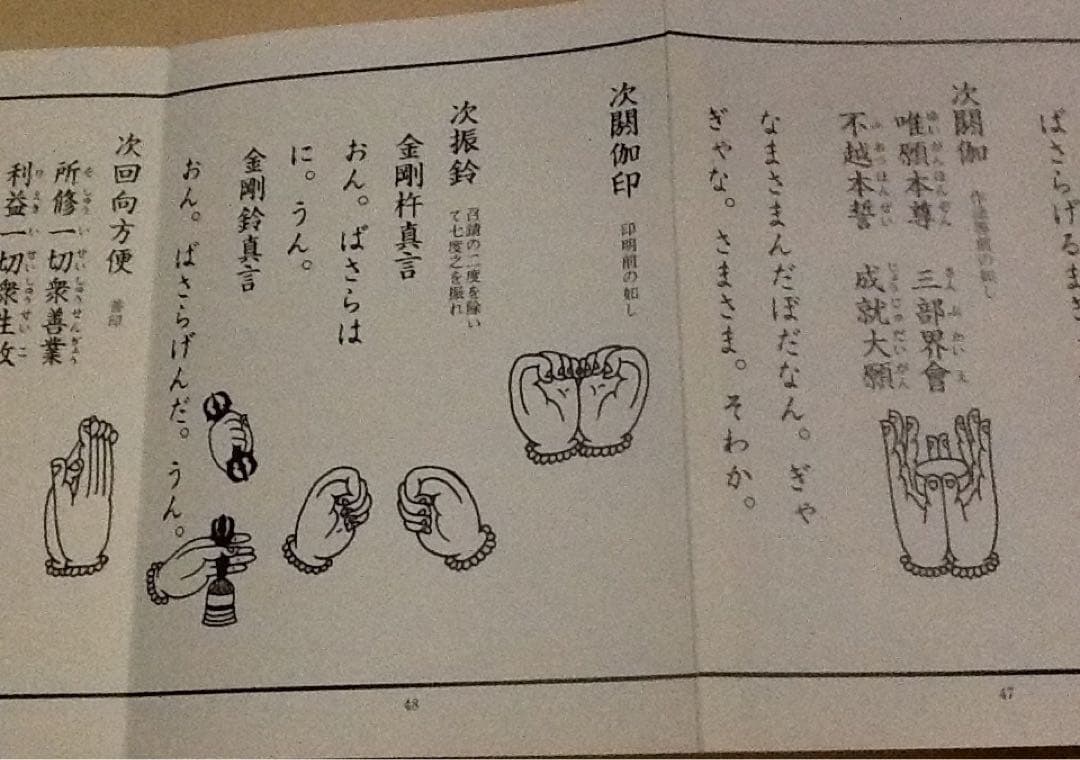 ばさらげるまき
次閼伽
唯願本尊　三部界會
不越本誓　成就大願
なまさまんだぼだなん。ぎゃ
ぎゃな。さまさま。そわか。
次閼伽印　印明前の如し
次振鈴　召請の二度を除い
て七度之を振れ
金剛杵真言
おん。ばさらは
に。うん。
金剛鈴真言
おん。ばさらげんだ。うん。
次回向方便　普印
所修一切衆善業
利益一切衆生故
48
47